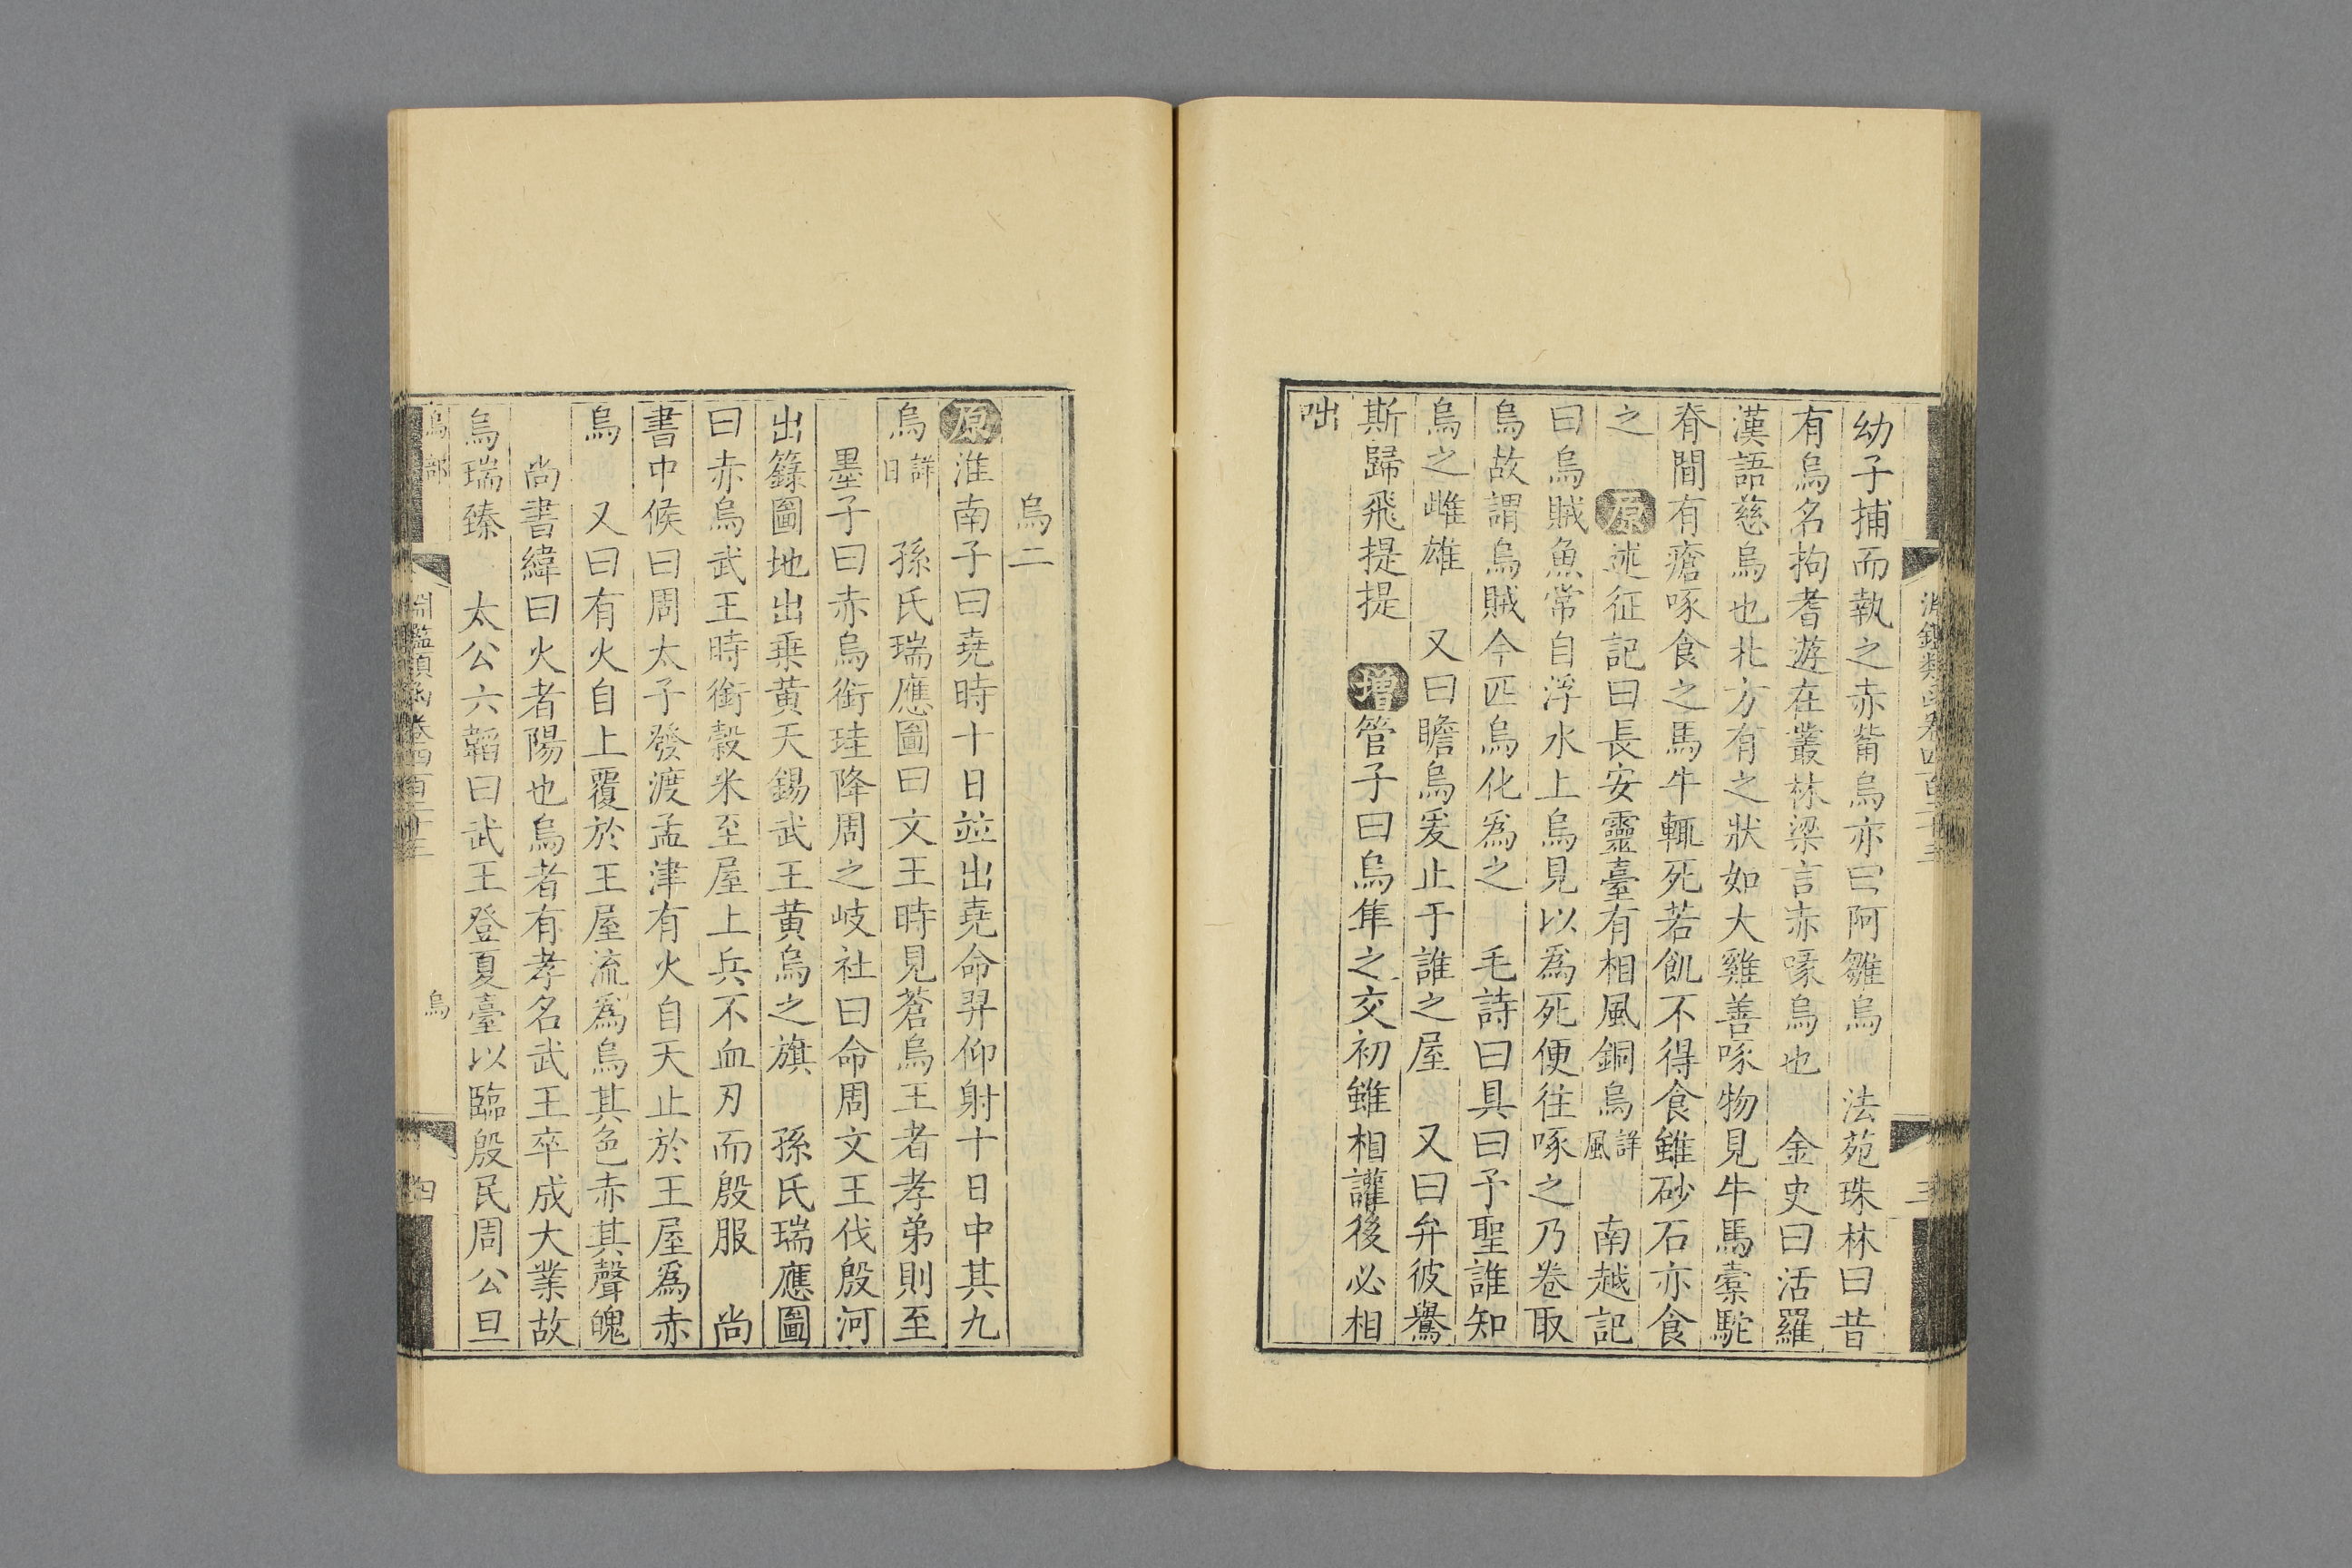 幼子捕而執之赤觜烏亦曰阿雛烏　法苑珠林曰昔
有烏名拘耆遊在叢林梁言赤喙烏也　金史曰活羅
漢語慈烏也北方有之狀如大雞善啄物見牛馬橐駝
脊間有瘡啄食之馬牛輒死若飢不得食雖砂石亦食
之　原述征記曰長安靈臺有相風銅烏詳風　南越記
曰烏賊魚常自浮水上烏見以爲死便往啄之乃卷取
烏故謂烏賊今匹烏化爲之　毛詩曰具曰予聖誰知
烏之雌雄　又曰瞻烏爰止于誰之屋　又曰弁彼鸒
斯歸飛提提　增管子曰烏隼之交初雖相讙後必相
咄
烏二
原淮南子曰堯時十日並出堯命羿仰射十日中其九
烏詳日　孫氏瑞應圖曰文王時見蒼烏王者孝弟則至
墨子曰赤烏銜珪降周之岐社曰命周文王伐殷河
出籙圖地出乗黃天錫武王黃烏之旗　孫氏瑞應圖
曰赤烏武王時銜穀米至屋上兵不血刃而殷服　尚
書中候曰周太子發渡孟津有火自天止於王屋爲赤
烏　又曰有火自上覆於王屋流爲烏其色赤其聲魄
尚書緯曰火者陽也烏者有孝名武王卒成大業故
烏瑞臻　太公六韜曰武王登夏臺以臨殷民周公旦
烏部　淵鑑類函卷四百二十三　烏　四